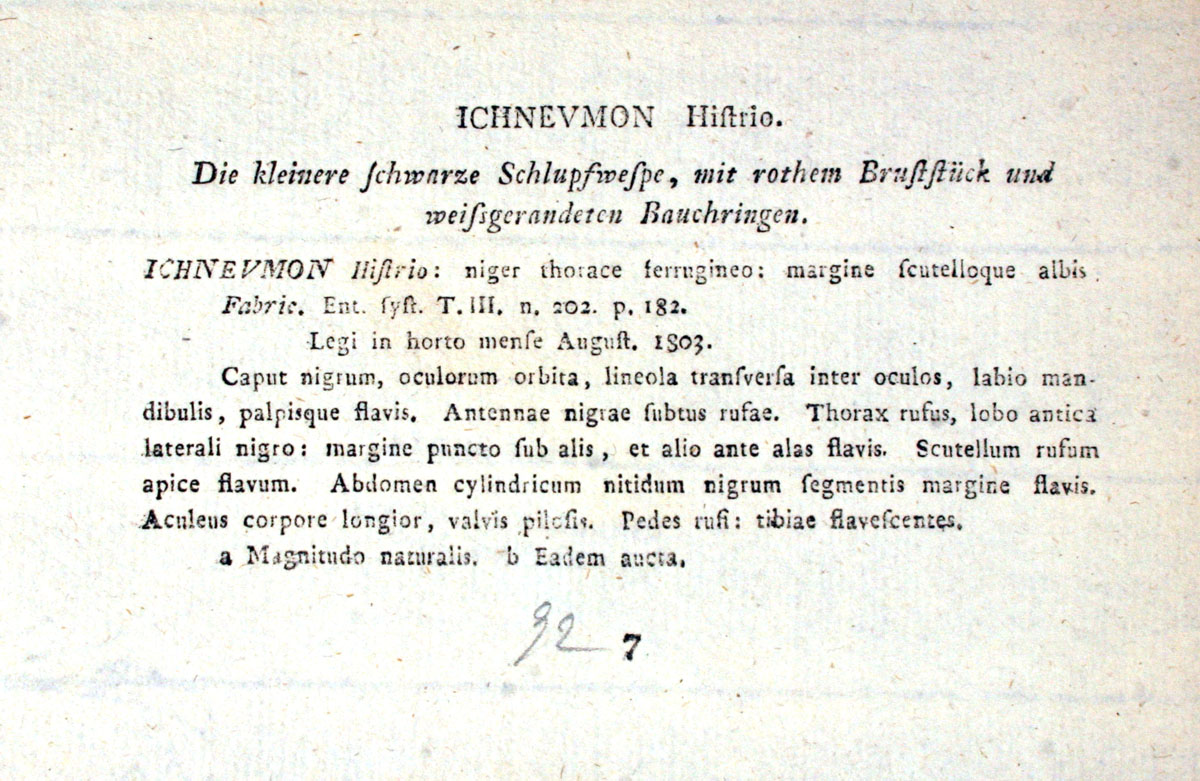 ICHNEVMON Hiſtrio.
Die kleinere ſchwarze Schlupfweſpe, mit rothem Bruſtſtück und
weiſsgerandeten Bauchringen.
ICHNEVMON Hiſtrio: niger thorace ferrugineo: margine ſcutelloque albis
Fabric. Ent. ſyſt. T. III. n. 202. p. 182.
Legi in horto menſe Auguſt. 1803.
Caput nigrum, oculorum orbita, lineola tranſverſa inter oculos, labio man-
dibulis, palpisque flavis. Antennae nigrae ſubtus rufae. Thorax rufus, lobo antica
laterali nigro: margine puncto ſub alis, et alio ante alas flavis. Scutellum rufum
apice flavum. Abdomen cylindricum nitidum nigrum ſegmentis margine flavis.
Aculeus corpore longior, valvis piloſis. Pedes rufi: tibiae flaveſcentes.
a Magnitudo naturalis. b Eadem aucta.
92 7